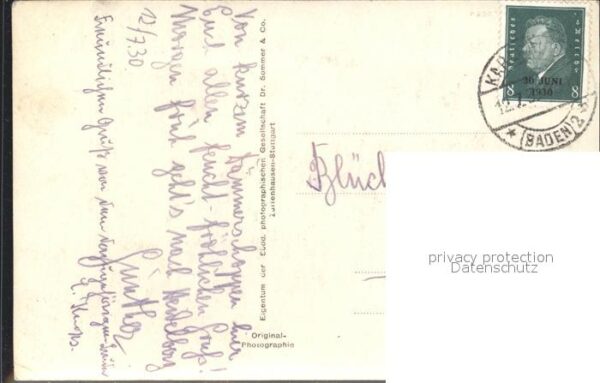 12/7.30
Von kurzem Dämmerschoppen hier
Euch allen feucht-fröhlichen Gruß!
Morgen früh geht's nach Heidelberg
Günther
Freundlichen Gruß von
Eigentum der Südd. photographischen Gesellschaft Dr. Sommer & Co.
Zuffenhausen-Stuttgart
Original-
Photographie
Deutsches Reich
30. JUNI
1930
8 8
(BADEN) 2
privacy protection
Datenschutz